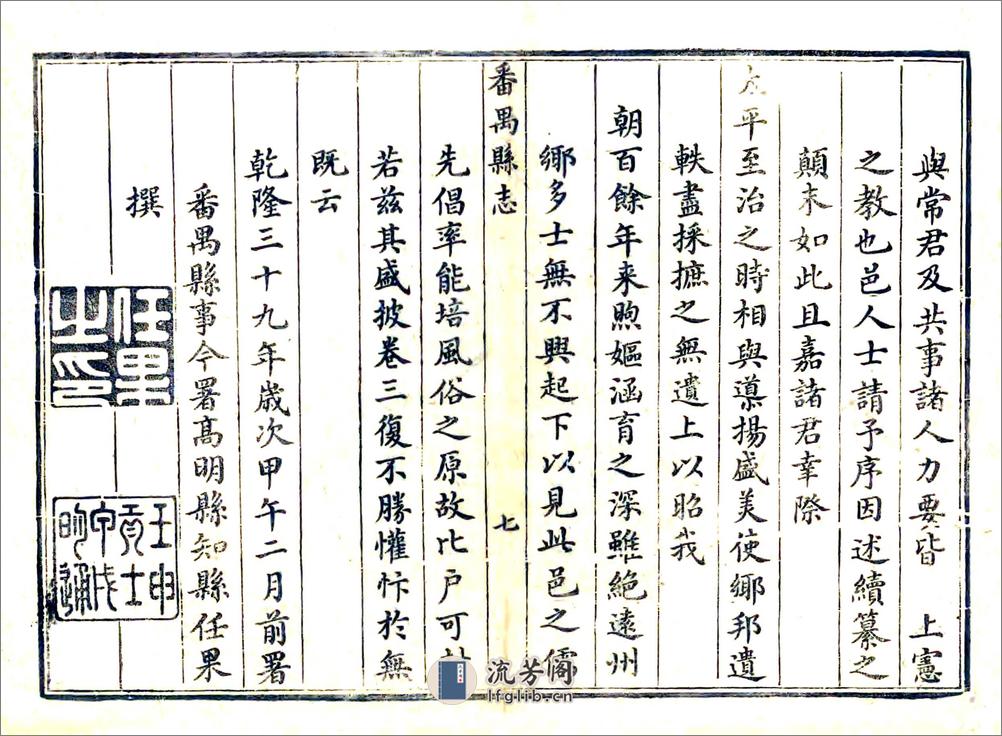 與常君及共事諸人力要皆 上憲
之教也邑人士請予序因述續纂之
顛末如此且嘉諸君幸際
太平至治之時相與導揚盛美使鄉邦遺
軼盡採摭之無遺上以昭我
朝百餘年来煦嫗涵育之深雖絕遠州
鄉多士無不興起下以見此邑之儒
番禺縣志 七
先倡率能培風俗之原故比户可
若兹其盛披卷三復不勝懽忭於無
既云
乾隆三十九年歲次甲午二月前署
番禺縣事今署高明縣知縣任果
撰
任果之印
壬申貢士
明通
流芳阁
lfglib.cn